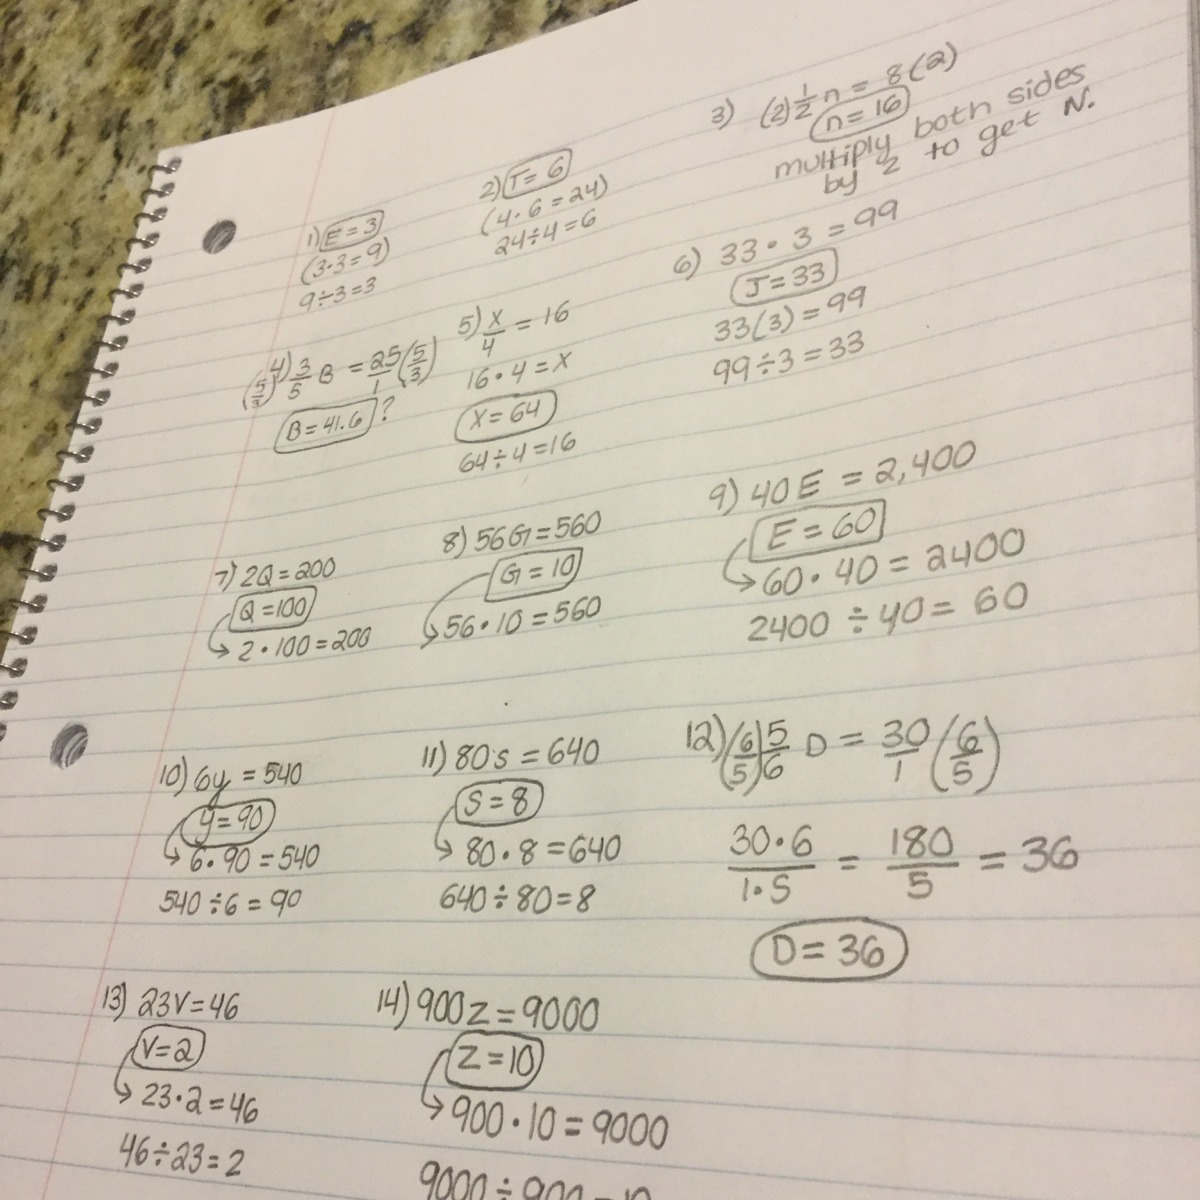 1) E = 3
(3·3=9)
9÷3=3
2) T = 6
(4·6=24)
24÷4=6
3) (2) 1/2 n = 8(2)
n = 16
multiply both sides
by 2 to get N.
4) (5/3) 3/5 B = 25/1 (5/3)
B = 41.6 ?
5) x/4 = 16
16·4=x
x=64
64÷4=16
6) 33·3=99
J=33
33(3)=99
99÷3=33
7) 2Q=200
Q=100
2·100=200
8) 56G=560
G=10
56·10=560
9) 40E = 2,400
E = 60
60·40=2400
2400÷40=60
10) 6y=540
y=90
6·90=540
540÷6=90
11) 80s=640
S=8
80·8=640
640÷80=8
12) (6/5) 5/6 D = 30/1 (6/5)
30·6/1·5 = 180/5 = 36
D=36
13) 23V=46
V=2
23·2=46
46÷23=2
14) 900z=9000
Z=10
900·10=9000
9000÷900=10